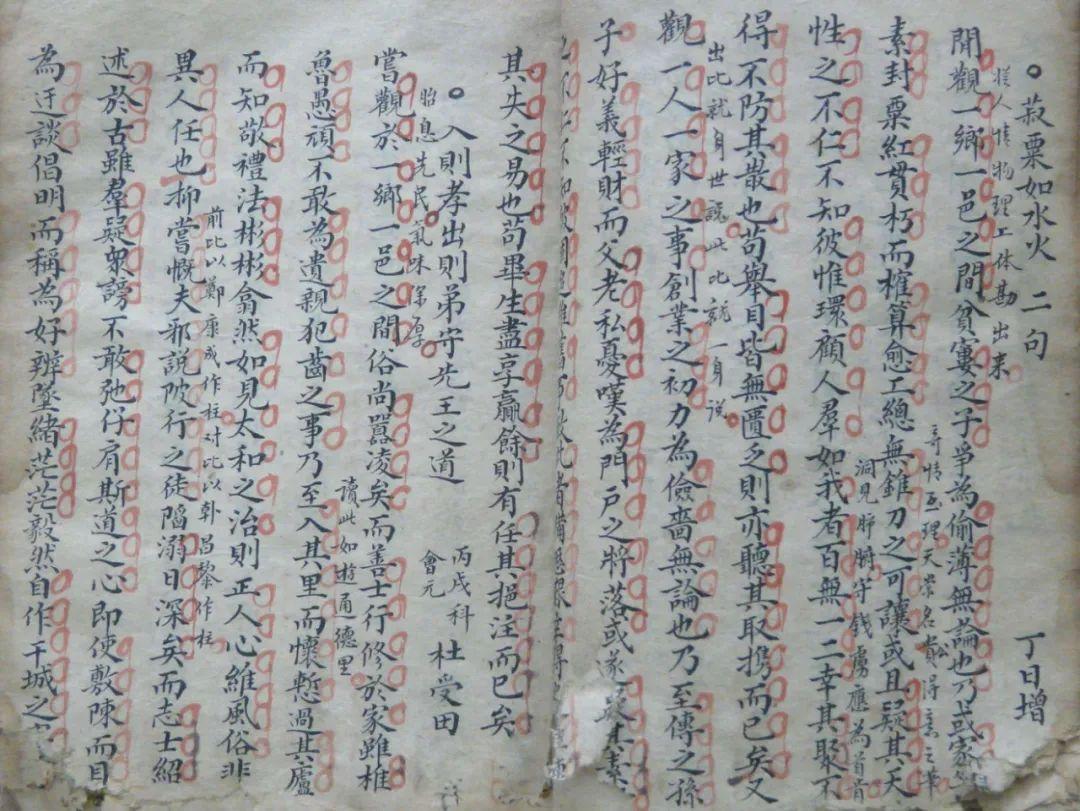 菽粟如水火 二句 丁日增
從人情物理上体勘出来
閒觀一鄉一邑之間貧窶之子爭為偷薄無論也乃或家
奇情至理天崇名貴得意之筆
素封粟紅貫朽而榷算愈工總無錐刀之可讓或且疑其天
洞見肺腑守錢虜應為首肯
性之不仁不知彼惟環顧人羣如我者百無一二幸其聚不
得不防其散也苟舉目皆無匱乏則亦聽其取携而已矣又
出比就身世說此比就一身說
觀一人一家之事創業之初力為儉嗇無論也乃至傳之孫
子好義輕財而父老私憂嘆為門戶之將落或遂疑其素
其失之易也苟畢生盡享贏餘則有任其挹注而已矣
入則孝出則弟守先王之道 丙戌科會元 杜受田
昭息先民氣味深厚
嘗觀於一鄉一邑之間俗尚囂凌矣而善士行修於家雖椎
魯愚頑不敢為遺親犯齒之事乃至入其里而懷慙過其廬
讀此如遊通德里
而知敬禮法彬彬翕然如見太和之治則正人心維風俗非
前比以鄭康成作柱对比以韩昌黎作柱
異人任也抑嘗慨夫邪說陂行之徒陷溺日深矣而志士紹
述於古雖羣疑衆謗不敢弛仔肩斯道之心即使敷陳而目
為迂談倡明而稱為好辨墜緒茫茫毅然自作干城之